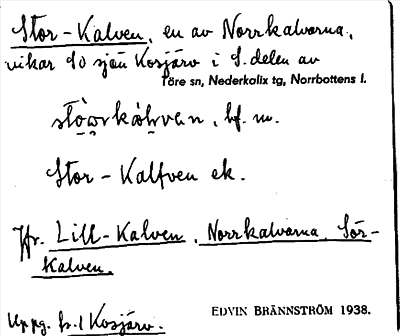 Stor-Kalven, en av Norrkalvarna,
vikar so sjön Kosjärv i S. delen av
Töre sn, Nederkalix tg, Norrbottens l.
stòwrkálvan, bf. m.
Stor-Kalfven ek.
Jfr. Lill-Kalven, Norrkalvarna, Sör-
Kalven.
Uppg. fr. 1 Kosjärv.
EDVIN BRÄNNSTRÖM 1938.